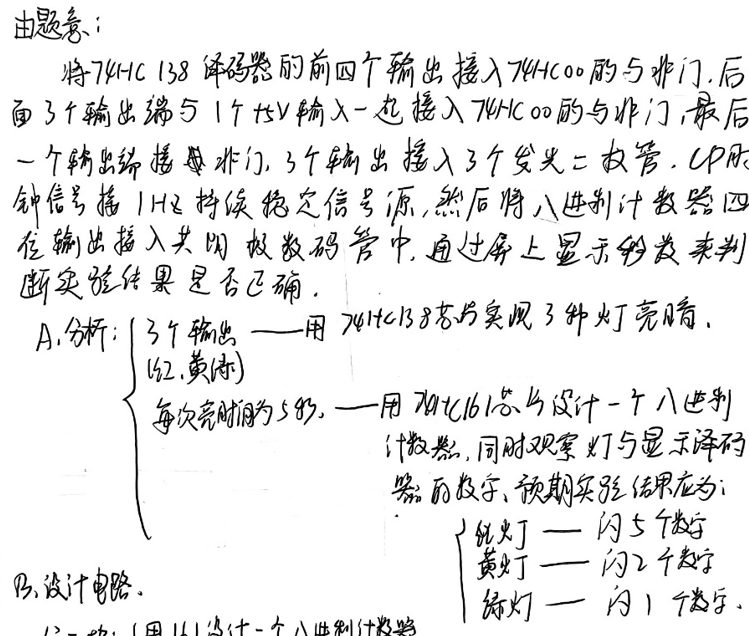 由题意：
将74HC138译码器的前四个输出接入74HC00的与非门，后
面3个输出端与1个+5V输入一起接入74HC00的与非门，最后
一个输出端接 非门，3个输出接入3个发光二极管．CP时
钟信号接1HZ持续稳定信号源，然后将八进制计数器四
位输出接入共阴极数码管中，通过屏上显示秒数来判
断实验结果是否正确．
A.分析： 3个输出 —— 用74HC138芯片实现3种灯亮暗．
(红.黄.绿)
每次亮时间为5秒． —— 用74HC161芯片设计一个八进制
计数器．同时观察灯与显示译码
器的数字、预期实验结果应为：
红灯 —— 闪5个数字
黄灯 —— 闪2个数字
B.设计电路．
绿灯 —— 闪1个数字．
用161设计一个八进制计数器